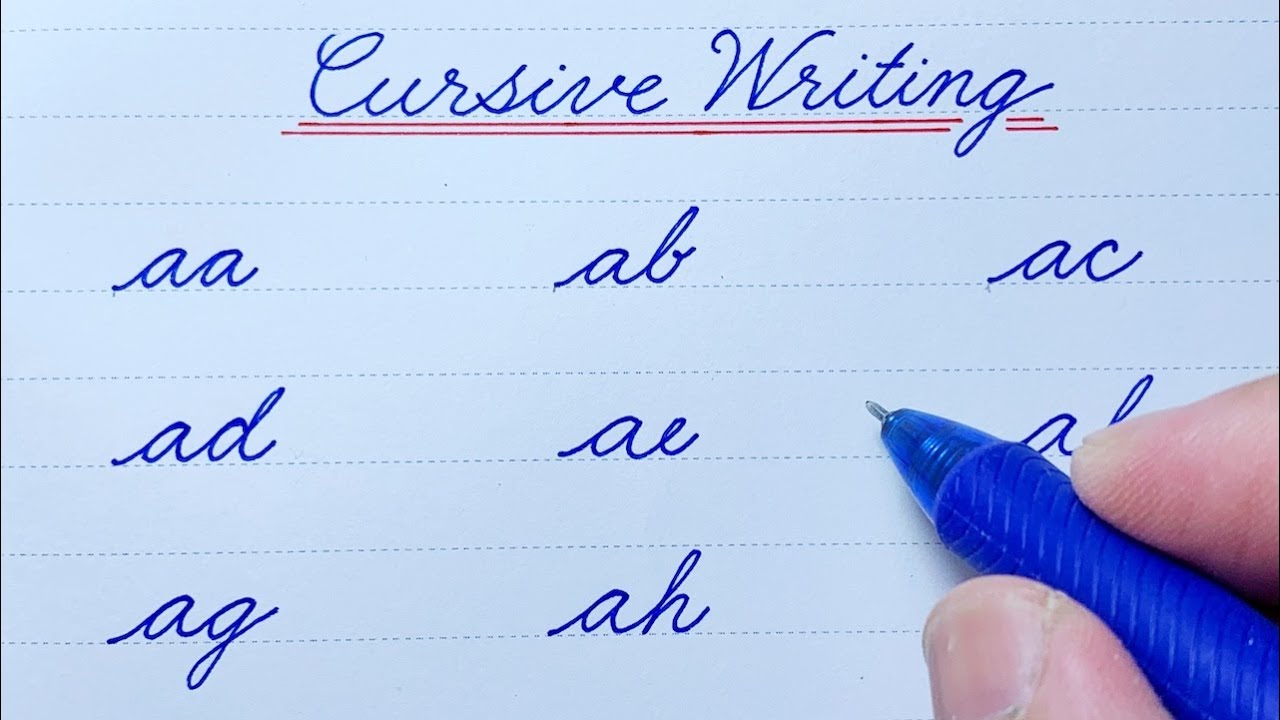 Cursive Writing
aa ab ac
ad ae
ag ah